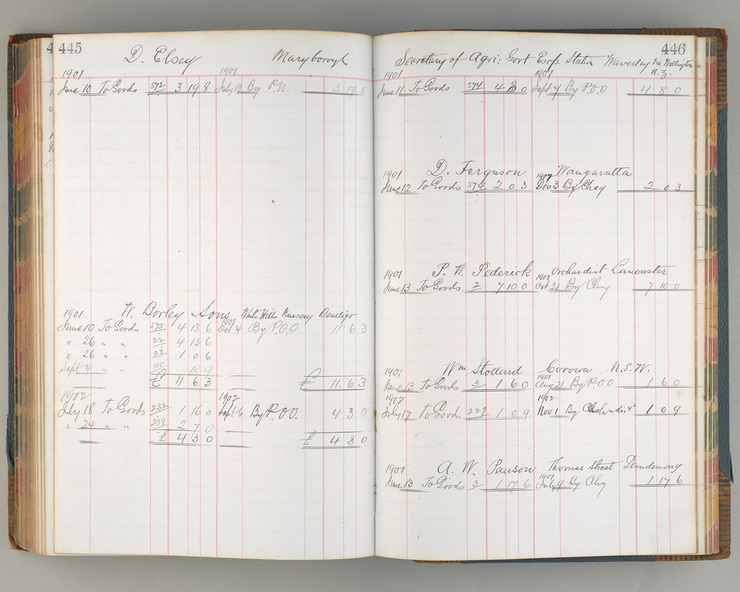 445
D. Elsey Maryborough
1901 1901
June 10 To Goods 572 3 19 8 July 13 By P.N. 3 19 8
1901 W. Borley Sons, Nursery Bendigo
June 10 To Goods 572 4 13 6 Oct 4 By P.O.O 11 6 3
" 26 " " 22 4 13 6
" 26 " " 22 1 0 6
Sept 4 " 100 18 9
£ 11 6 3 £ 11.6.3
1902 1902
July 18 To Goods 232 1 16 0 Sept 6 By P.O.O. 4 3 0
" 24 " " 238 2 7 0
£ 4 3 0 £ 4 3 0
446
Secretary of Agri: Govt Exp. Station Waverley Via Wellington
N.Z.
1901 1901
June 11 To Goods 574 4 8 0 Sept 7 By P.O.O 4 8 0
1901 D. Ferguson 1902 Wangaratta
June 12 To Goods 574 2 0 3 Dec 3 By Chq 2 0 3
1901 P. W. Pederick 1901 Orchardist Lancaster
June 13 To Goods 2 7 10 0 Oct 21 By Chq 7 10 0
1901 Wm Stollard Corowa N.S.W.
1901
June 13 To Goods 3 1 6 0 Aug 21 By P.O.O 1 6 0
1902 1902
July 17 To Goods 227 1 0 9 Nov 1 By 1 0 9
1901 A. W. Pauson Thomas Street Dandenong
1901
June 13 To Goods 3 1 17 6 July 9 By Chq 1 17 6